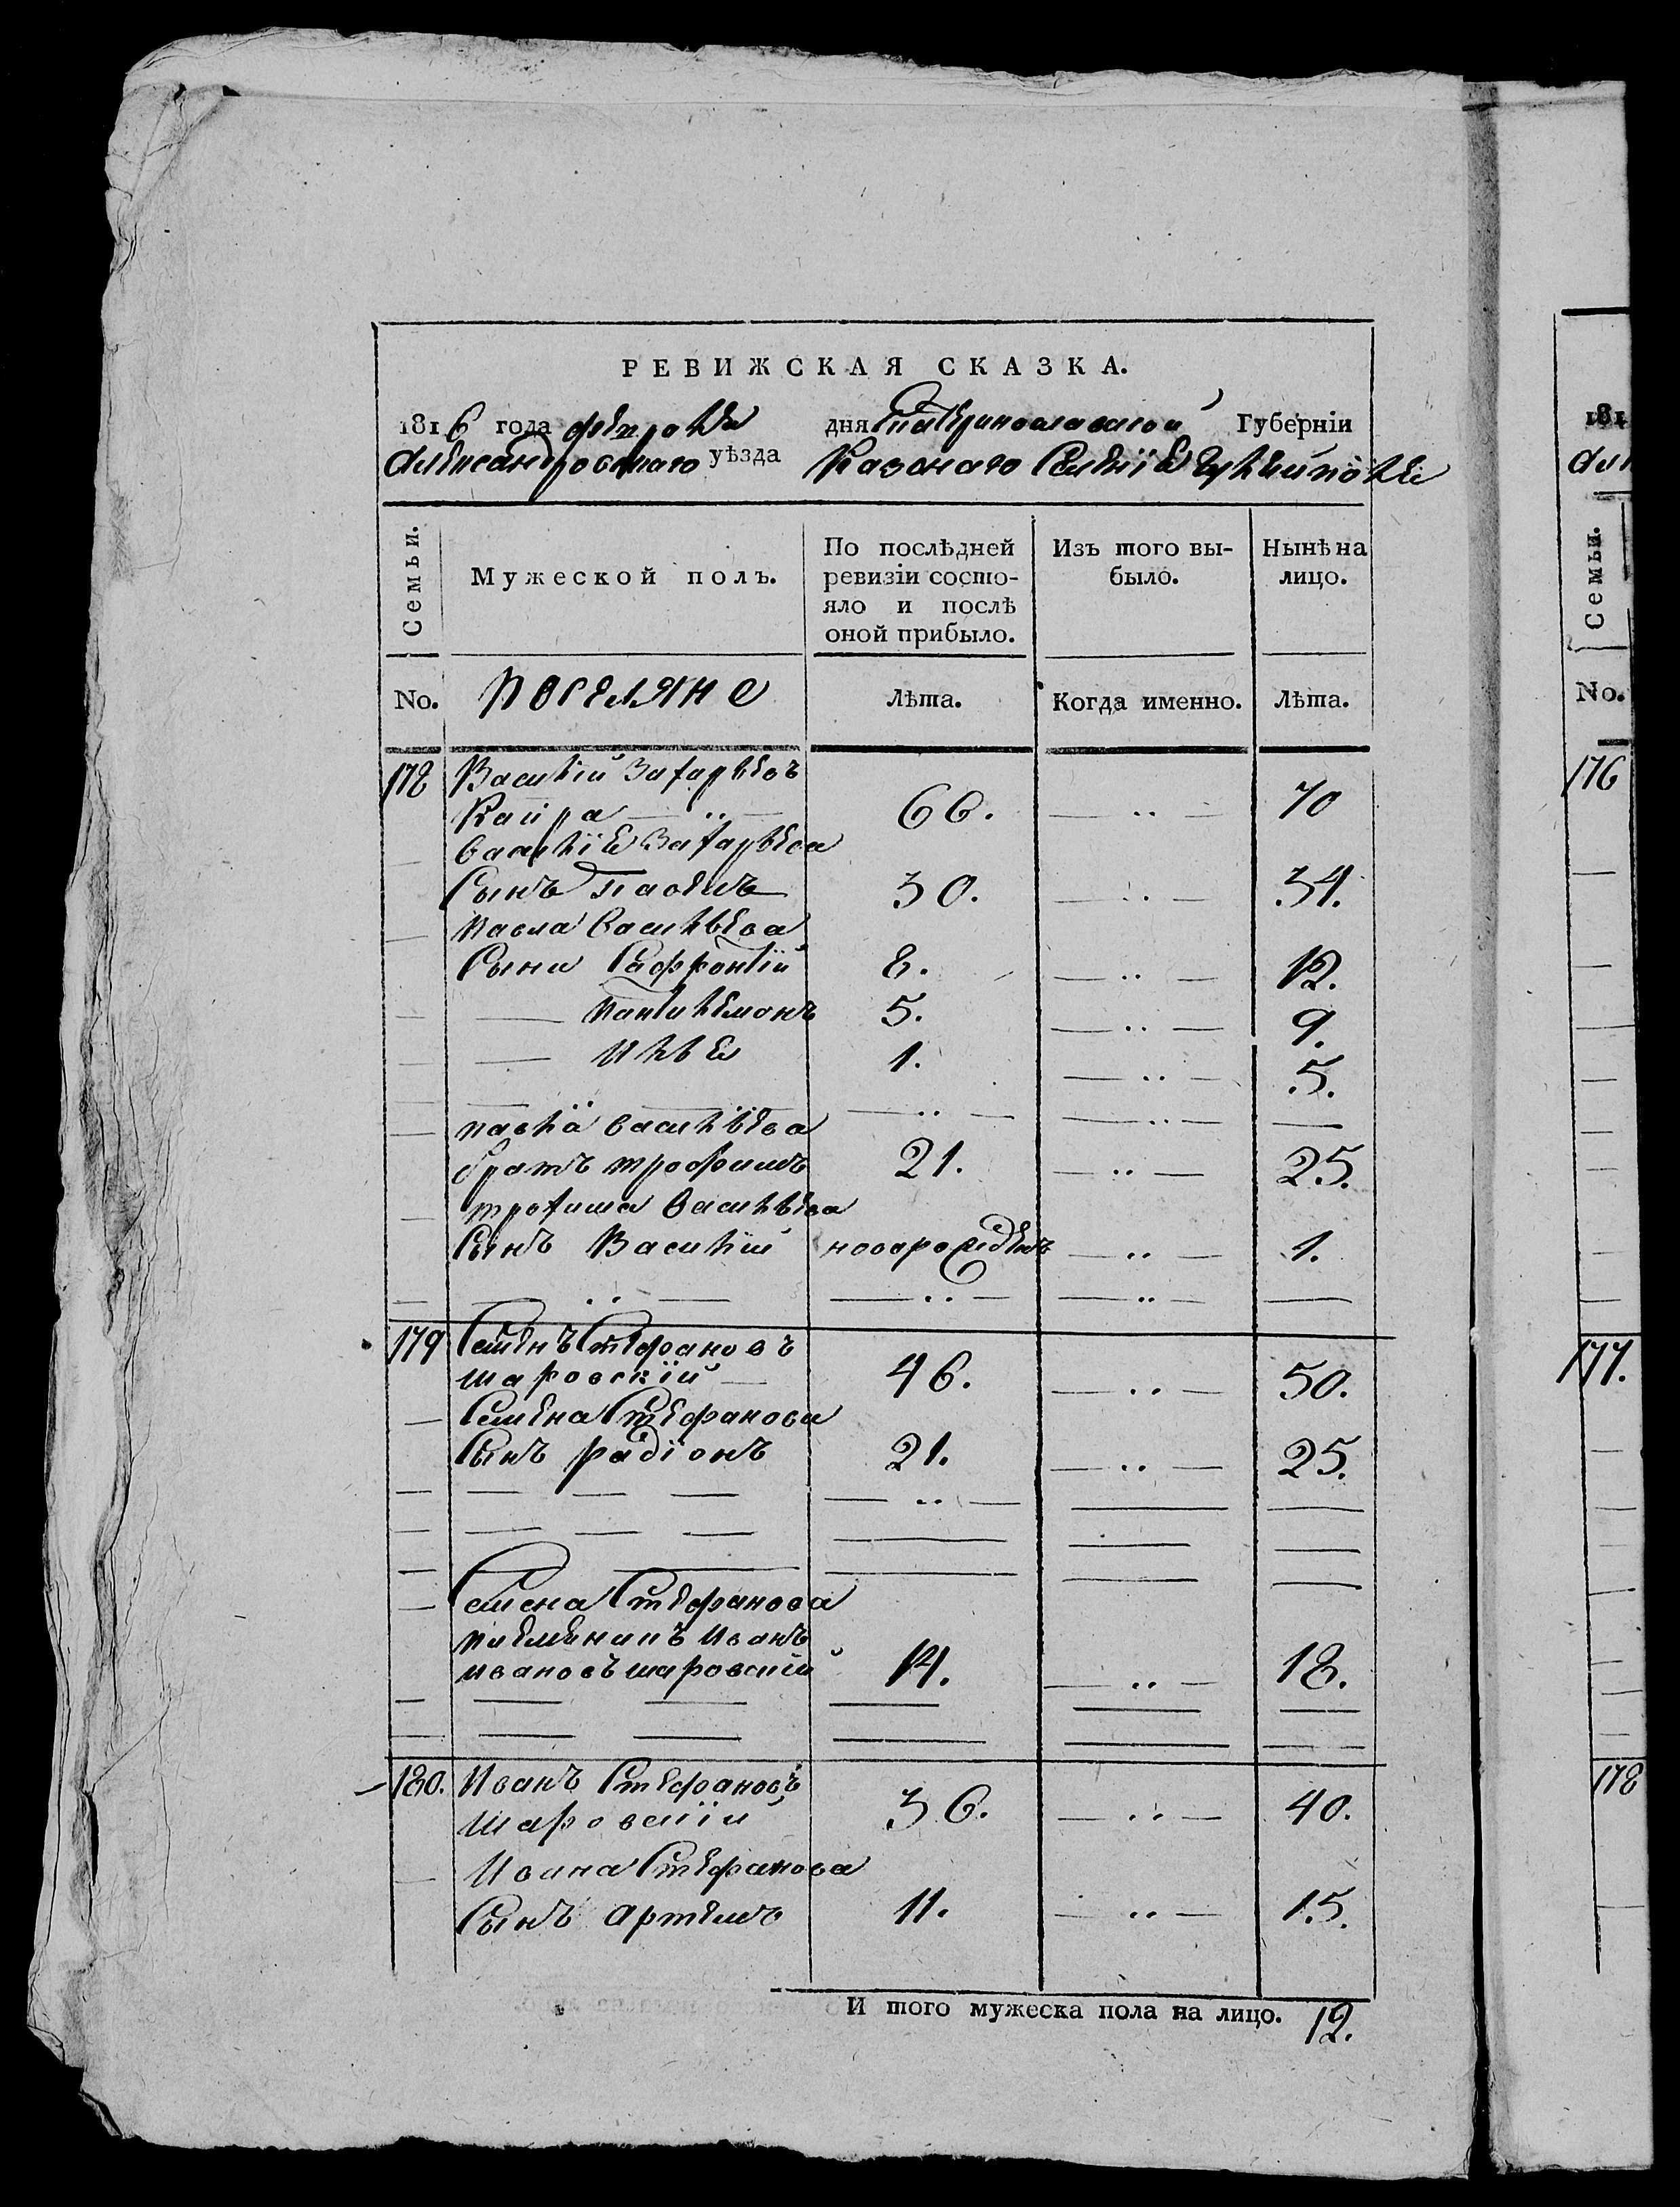 РЕВИЖСКАЯ СКАЗКА.
1816 года февраля дня Екатеринославской Губерніи
Александровскаго уѣзда Казенаго Селенія Гуляйполя
Семьи. Мужеской полъ. По послѣдней ревизіи состояло и послѣ оной прибыло. Изъ того выбыло. Нынѣ на лицо.
No. поселяне Лѣта. Когда именно. Лѣта.
178 Василій Захарьевъ
Кайра — .. — 66. — .. — 70
Василія Захарьева
Сынъ Павелъ 30. — .. — 34.
Павла Васильева
Сыни Сафроній 8. — .. — 12.
— Пантилемонъ 5. — .. — 9.
— Илья 1. — .. — 5.
Павла Васильева
братъ трофимъ 21. — .. — 25.
трофима Васильева
Сынъ Василій новорожденъ — .. — 1.
179 Семенъ Стефановъ
шаровскій — 46. — .. — 50.
Семена Стефанова
Сынъ радіонъ 21. — .. — 25.
Семена Стефанова
племеникъ Иванъ
ивановъ шаровскій 14. — .. — 18.
180. Иванъ Стефановъ
шаровскій 36. — .. — 40.
Ивана Стефанова
Сынъ Артемъ 11. — .. — 15.
И того мужеска пола на лицо. 12.
181
Семьи.
No.
176
177.
178